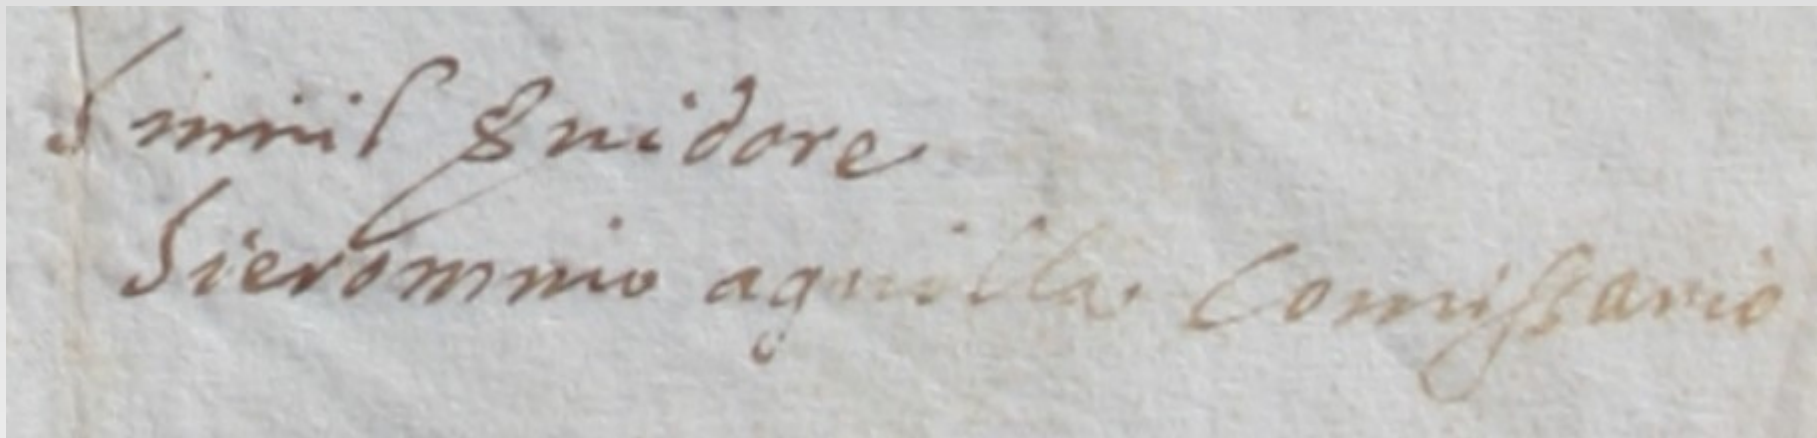 Sermil Seruidore
Sieronimio aquilla Comissario